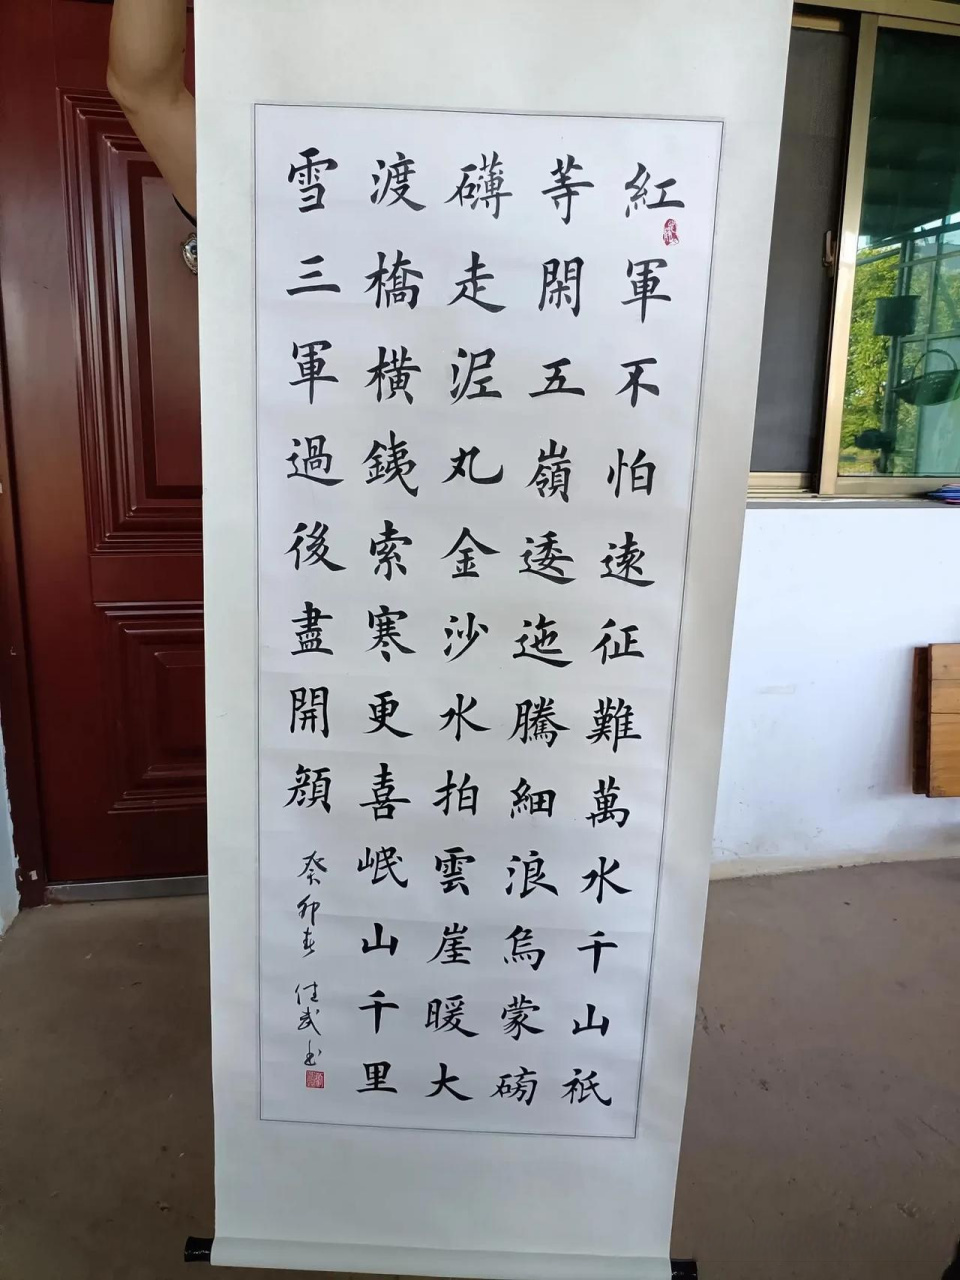 紅軍不怕遠征難萬水千山祇
等閑五嶺逶迤騰細浪烏蒙磅
礴走泥丸金沙水拍雲崖暖大
渡橋橫鐵索寒更喜岷山千里
雪三軍過後盡開顏
癸卯春 佳武书